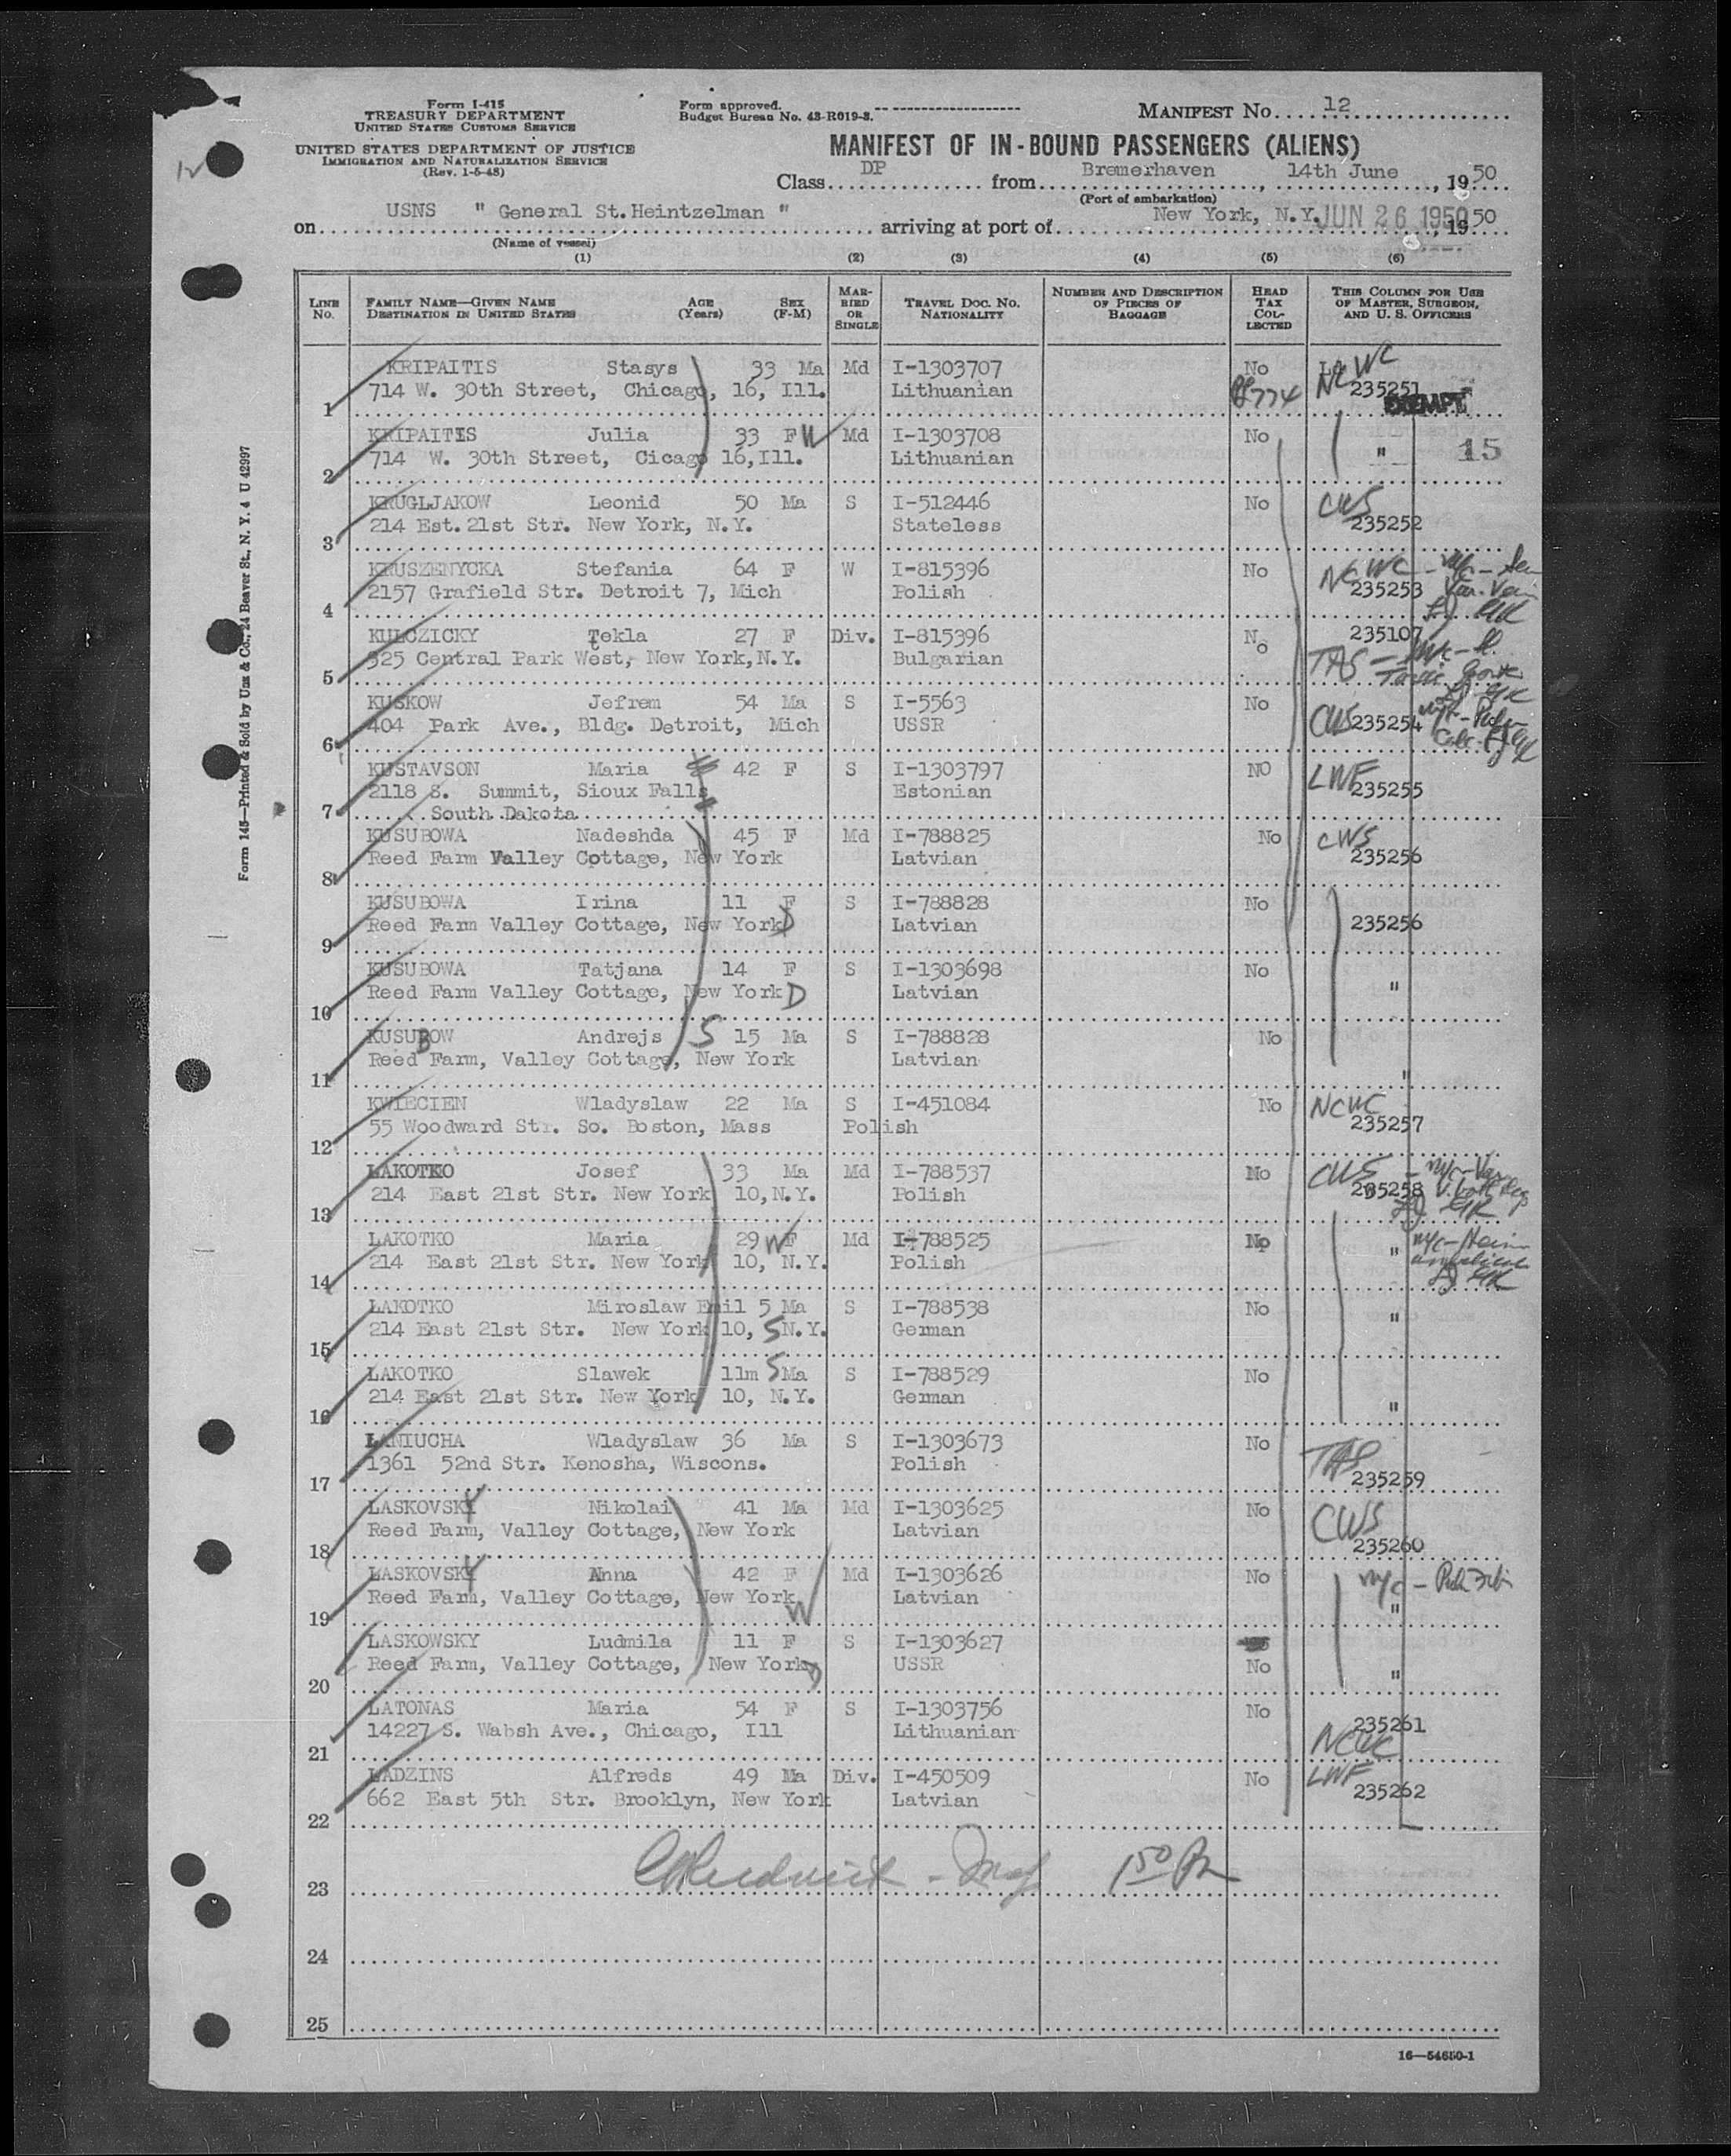 Form I-415
TREASURY DEPARTMENT
UNITED STATES CUSTOMS SERVICE
UNITED STATES DEPARTMENT OF JUSTICE
IMMIGRATION AND NATURALIZATION SERVICE
(Rev. 1-5-48)
Form approved.
Budget Bureau No. 43-R019-3.
MANIFEST No. 12
MANIFEST OF IN-BOUND PASSENGERS (ALIENS)
Class DP from Bremerhaven, 14th June, 1950
(Port of embarkation)
on USNS " General St.Heintzelman " arriving at port of New York, N.Y. JUN 26 1950, 1950
(Name of vessel)
(1) (2) (3) (4) (5) (6)
LINE No. FAMILY NAME—GIVEN NAME DESTINATION IN UNITED STATES AGE (Years) SEX (F-M) MARRIED OR SINGLE TRAVEL DOC. NO. NATIONALITY NUMBER AND DESCRIPTION OF PIECES OF BAGGAGE HEAD TAX COLLECTED THIS COLUMN FOR USE OF MASTER, SURGEON, AND U. S. OFFICERS
KRIPAITIS Stasys 33 Ma Md I-1303707 No NCWC
1 714 W. 30th Street, Chicago, 16, Ill. Lithuanian 235251 EXEMPT
KRIPAITIS Julia 33 F W Md I-1303708 No
2 714 W. 30th Street, Cicago 16,Ill. Lithuanian " 15
KRUGLJAKOW Leonid 50 Ma S I-512446 No CWS
3 214 Est. 21st Str. New York, N.Y. Stateless 235252
KRUSZENYCKA Stefania 64 F W I-815396 No NCWC
4 2157 Grafield Str. Detroit 7, Mich Polish 235253
KULCZICKY Tekla 27 F Div. I-815396 No 235107
5 325 Central Park West, New York,N.Y. Bulgarian TAS
KUSKOW Jefrem 54 Ma S I-5563 No
6 404 Park Ave., Bldg. Detroit, Mich USSR CWS 235254
KUSTAVSON Maria 42 F S I-1303797 NO LWF
2118 S. Summit, Sioux Falls, Estonian 235255
7 South Dakota
KUSUBOWA Nadeshda 45 F Md I-788825 No CWS
8 Reed Farm Valley Cottage, New York Latvian 235256
KUSUBOWA Irina 11 F S I-788828 No
9 Reed Farm Valley Cottage, New York D Latvian 235256
KUSUBOWA Tatjana 14 F S I-1303698 No
10 Reed Farm Valley Cottage, New York D Latvian "
KUSUBOW Andrejs S 15 Ma S I-788828 No
11 Reed Farm, Valley Cottage, New York Latvian "
KWIECIEN Wladyslaw 22 Ma S I-451084 No NCWC
12 55 Woodward Str. So. Boston, Mass Polish 235257
LAKOTKO Josef 33 Ma Md I-788537 No CWS
13 214 East 21st Str. New York 10,N.Y. Polish 235258
LAKOTKO Maria 29 W F Md I-788525 No
14 214 East 21st Str. New York 10, N.Y. Polish "
LAKOTKO Miroslaw Emil 5 Ma S I-788538 No
15 214 East 21st Str. New York 10, S N.Y. German "
LAKOTKO Slawek 11m S Ma S I-788529 No
16 214 East 21st Str. New York 10, N.Y. German "
LANIUCHA Wladyslaw 36 Ma S I-1303673 No TAS
17 1361 52nd Str. Kenosha, Wiscons. Polish 235259
LASKOVSKY Nikolai 41 Ma Md I-1303625 No CWS
18 Reed Farm, Valley Cottage, New York Latvian 235260
LASKOVSKY Anna 42 F Md I-1303626 No
19 Reed Farm, Valley Cottage, New York W Latvian "
LASKOWSKY Ludmila 11 F S I-1303627
20 Reed Farm, Valley Cottage, New York D USSR No "
LATONAS Maria 54 F S I-1303756 No 235261
21 14227 S. Wabsh Ave., Chicago, Ill Lithuanian NCWC
LADZINS Alfreds 49 Ma Div. I-450509 No LWF
22 662 East 5th Str. Brooklyn, New York Latvian 235262
23
24
25
16—54650-1
Form 145—Printed & Sold by Unz & Co., 24 Beaver St., N. Y. 4 U 42997